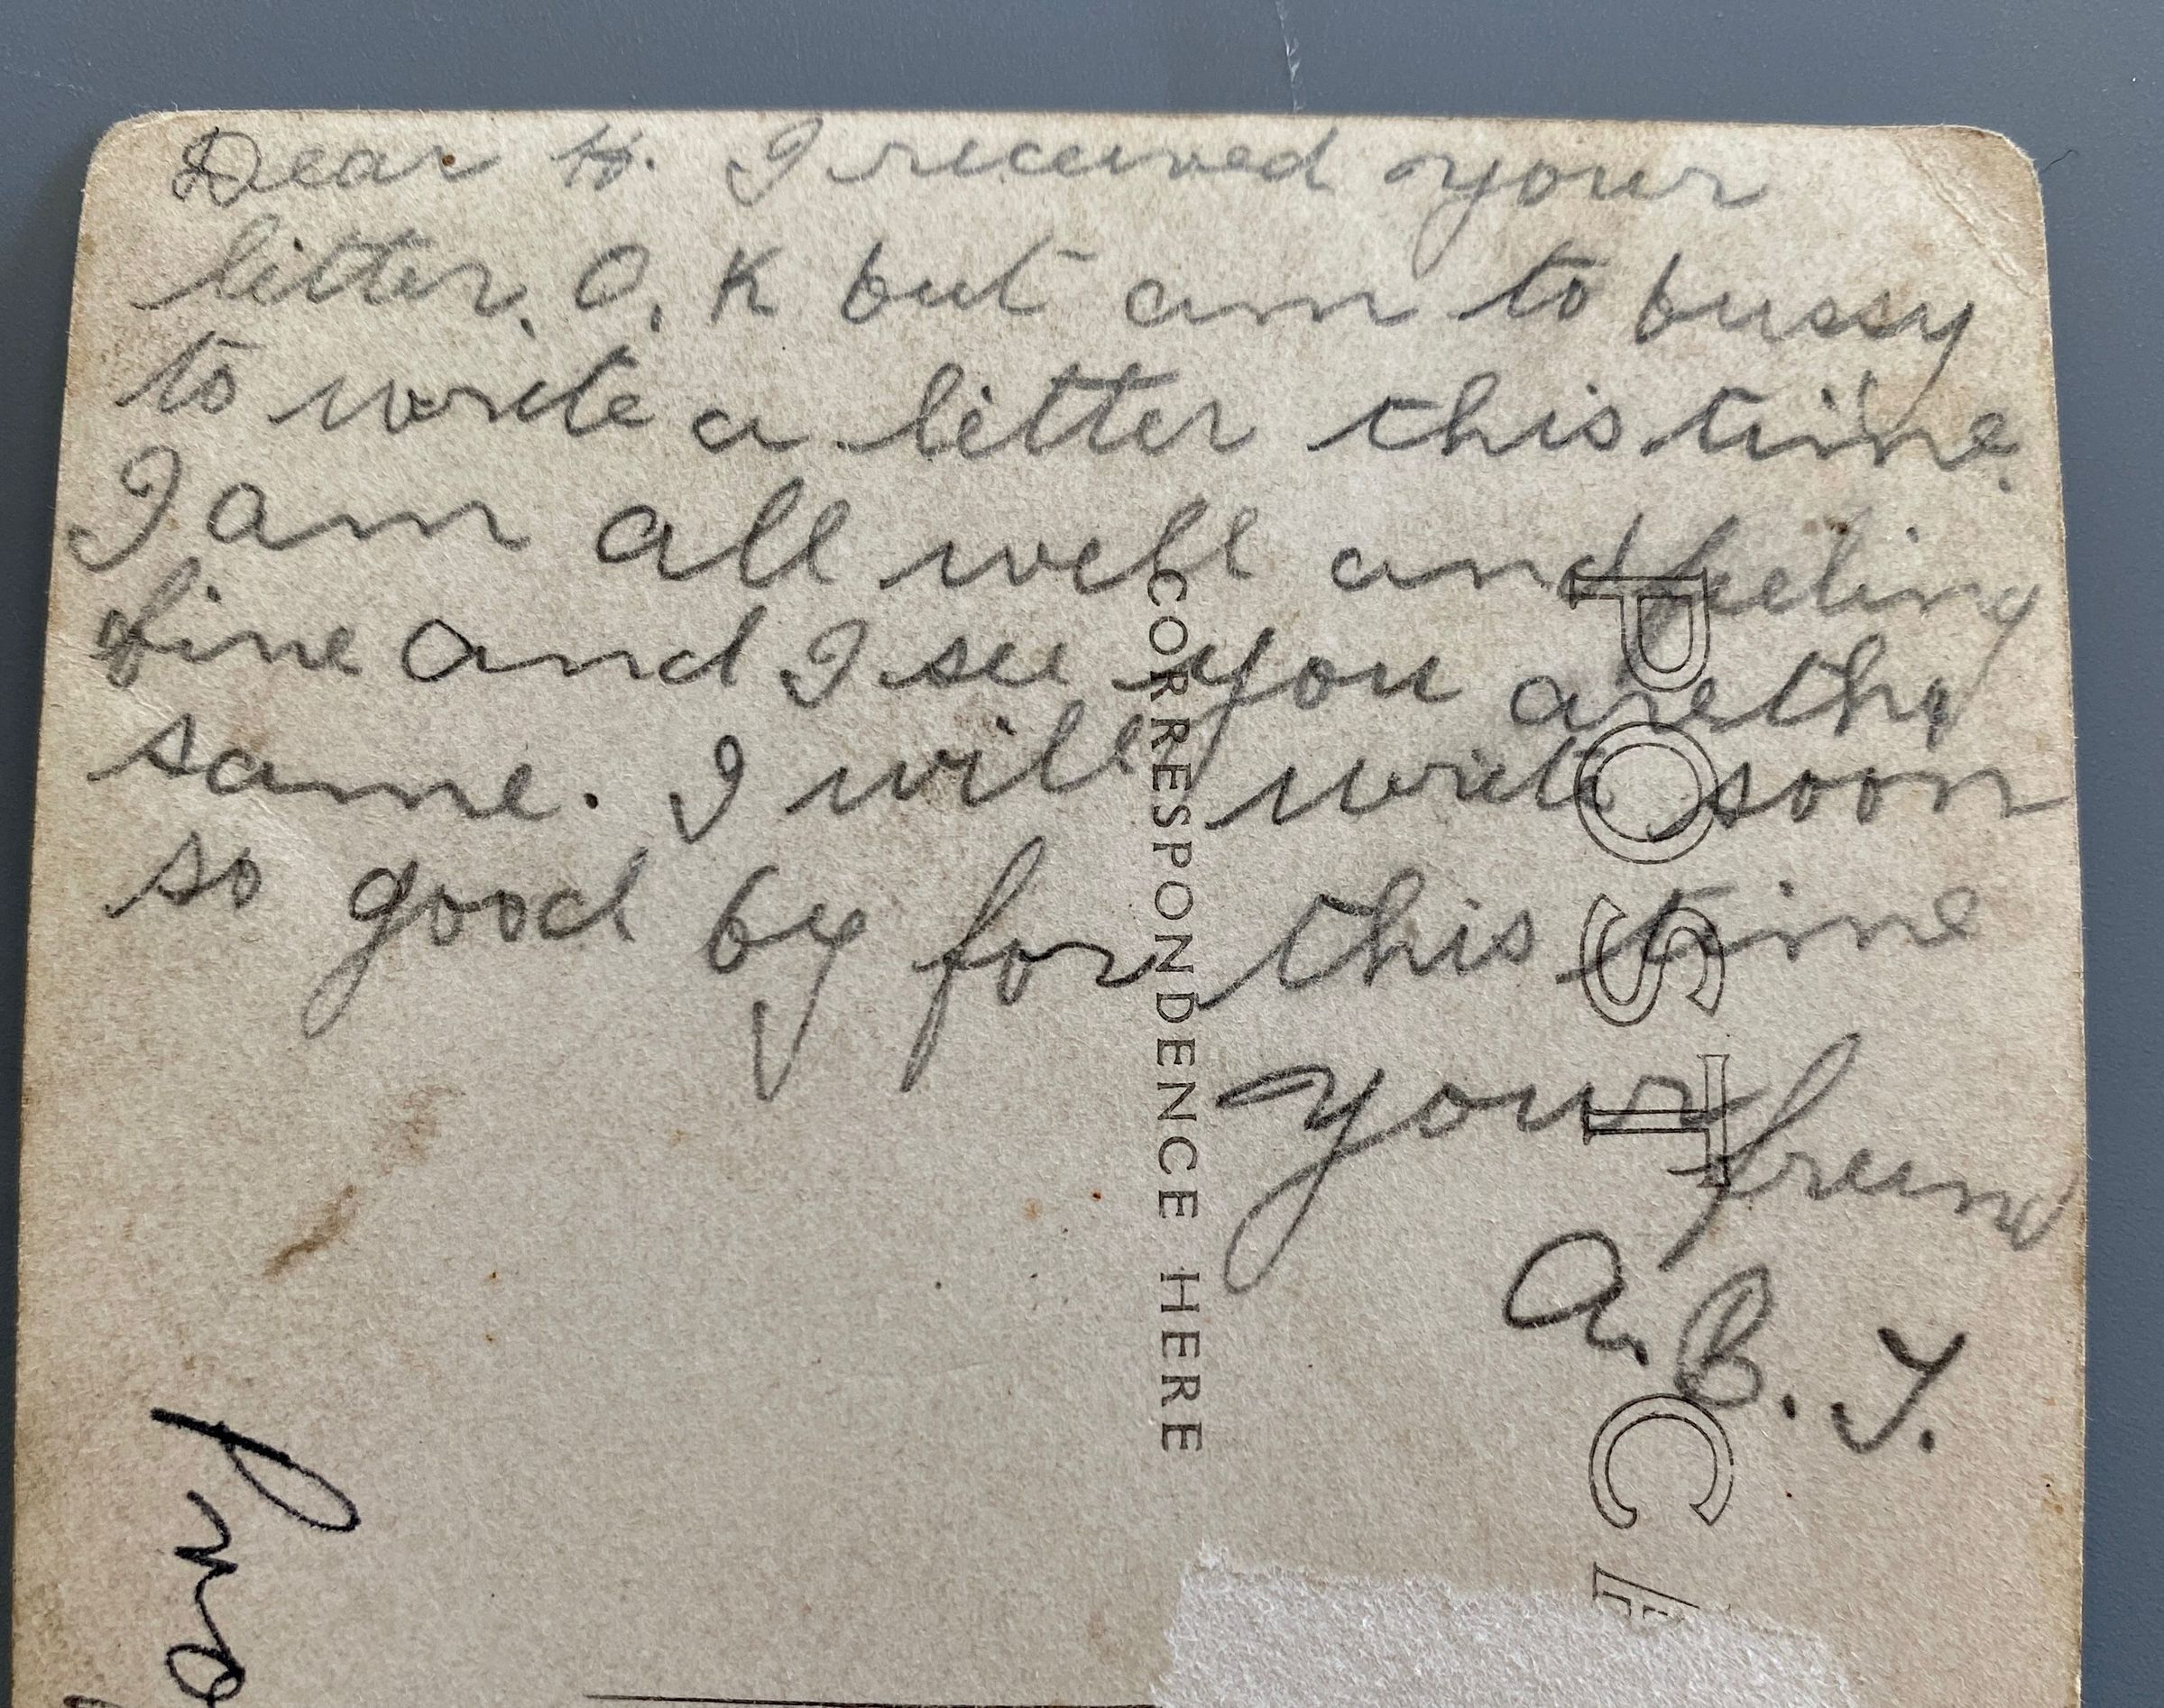 Dear H. I received your
letter. O.K but am to bussy
to write a letter this time.
I am all well and feeling
fine and I see you are the
same. I will write soon
so good by for this time
your freind
A. B. Y.
CORRESPONDENCE HERE
POST C